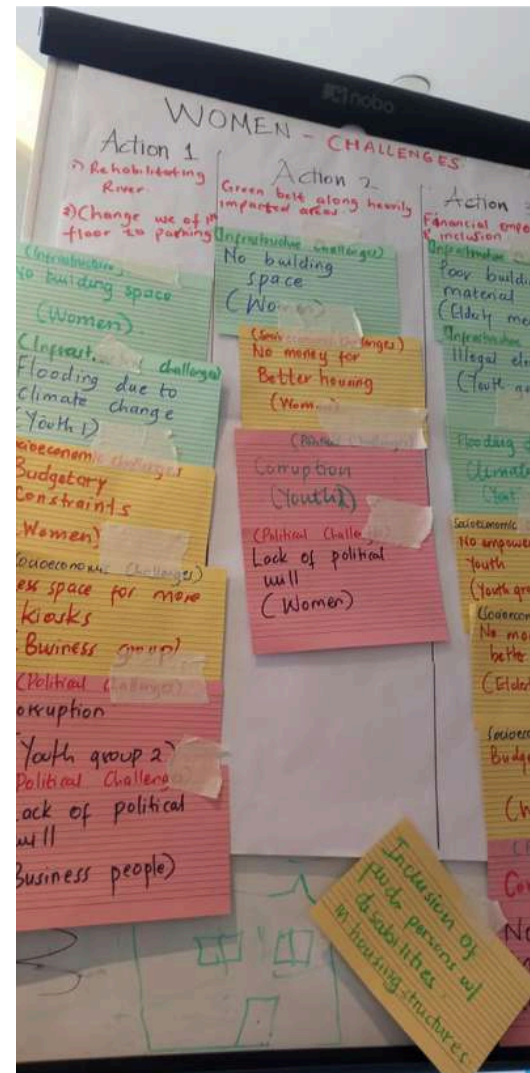 nobo
WOMEN - CHALLENGES
Action 1
1) Rehabilitating
River.
2) Change use of 1st
floor to parking
(Infrastructure)
No building space
(Women)
(Infrast... challenges)
Flooding due to
climate change
(Youth 1)
Socioeconomic challenges
Budgetary
Constraints
(Women)
(Socioeconomic Challenges)
ess space for more
kiosks
(Business group)
(Political Challenges)
orruption
Youth group 2)
Political Challenge
ack of political
will
Business people)
Action 2
Green belt along heavily
impacted areas.
(Infrastructure challenges)
No building
space
(Women)
(Socioeconomic challenges)
No money for
Better housing
(Women)
(Political Challenges)
Corruption
(Youth 2)
(Political Challe
Lack of political
will
(Women)
Action
Financial empo
& inclusion
Infrastructure
Poor buildi
material
(Elderly me
Infrastructure
Illegal ele
(Youth
Flooding
Climate
Socioeconomic
No empower
Youth
(Youth gro
(Socioecon
No mon
bette
(Elder
(Socioeco
Budge
Co
No
Inclusion of
persons w/
disabilities
in housing structures